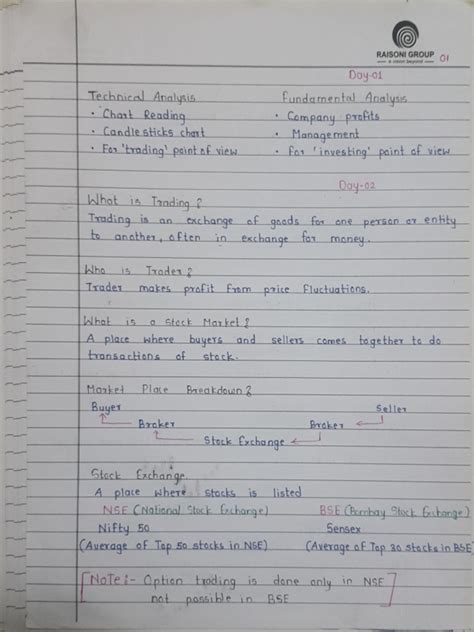 RAISONI GROUP
a vision beyond
01
Day-01
Technical Analysis
Fundamental Analysis
• Chart Reading
• Company profits
• Candlesticks chart
• Management
• For 'trading' point of view
• For 'investing' point of view
Day-02
What is Trading?
Trading is an exchange of goods for one person or entity
to another, often in exchange for money.
Who is Trader?
Trader makes profit from price fluctuations.
What is a Stock Market?
A place where buyers and sellers comes together to do
transactions of stock.
Market Place Breakdown?
Buyer Seller
Broker Broker
Stock Exchange
Stock Exchange
A place where stocks is listed
NSE (National Stock Exchange) BSE (Bombay Stock Exhange)
Nifty 50 Sensex
(Average of Top 50 stocks in NSE) (Average of Top 30 stocks in BSE
[Note:- Option trading is done only in NSE
not possible in BSE]